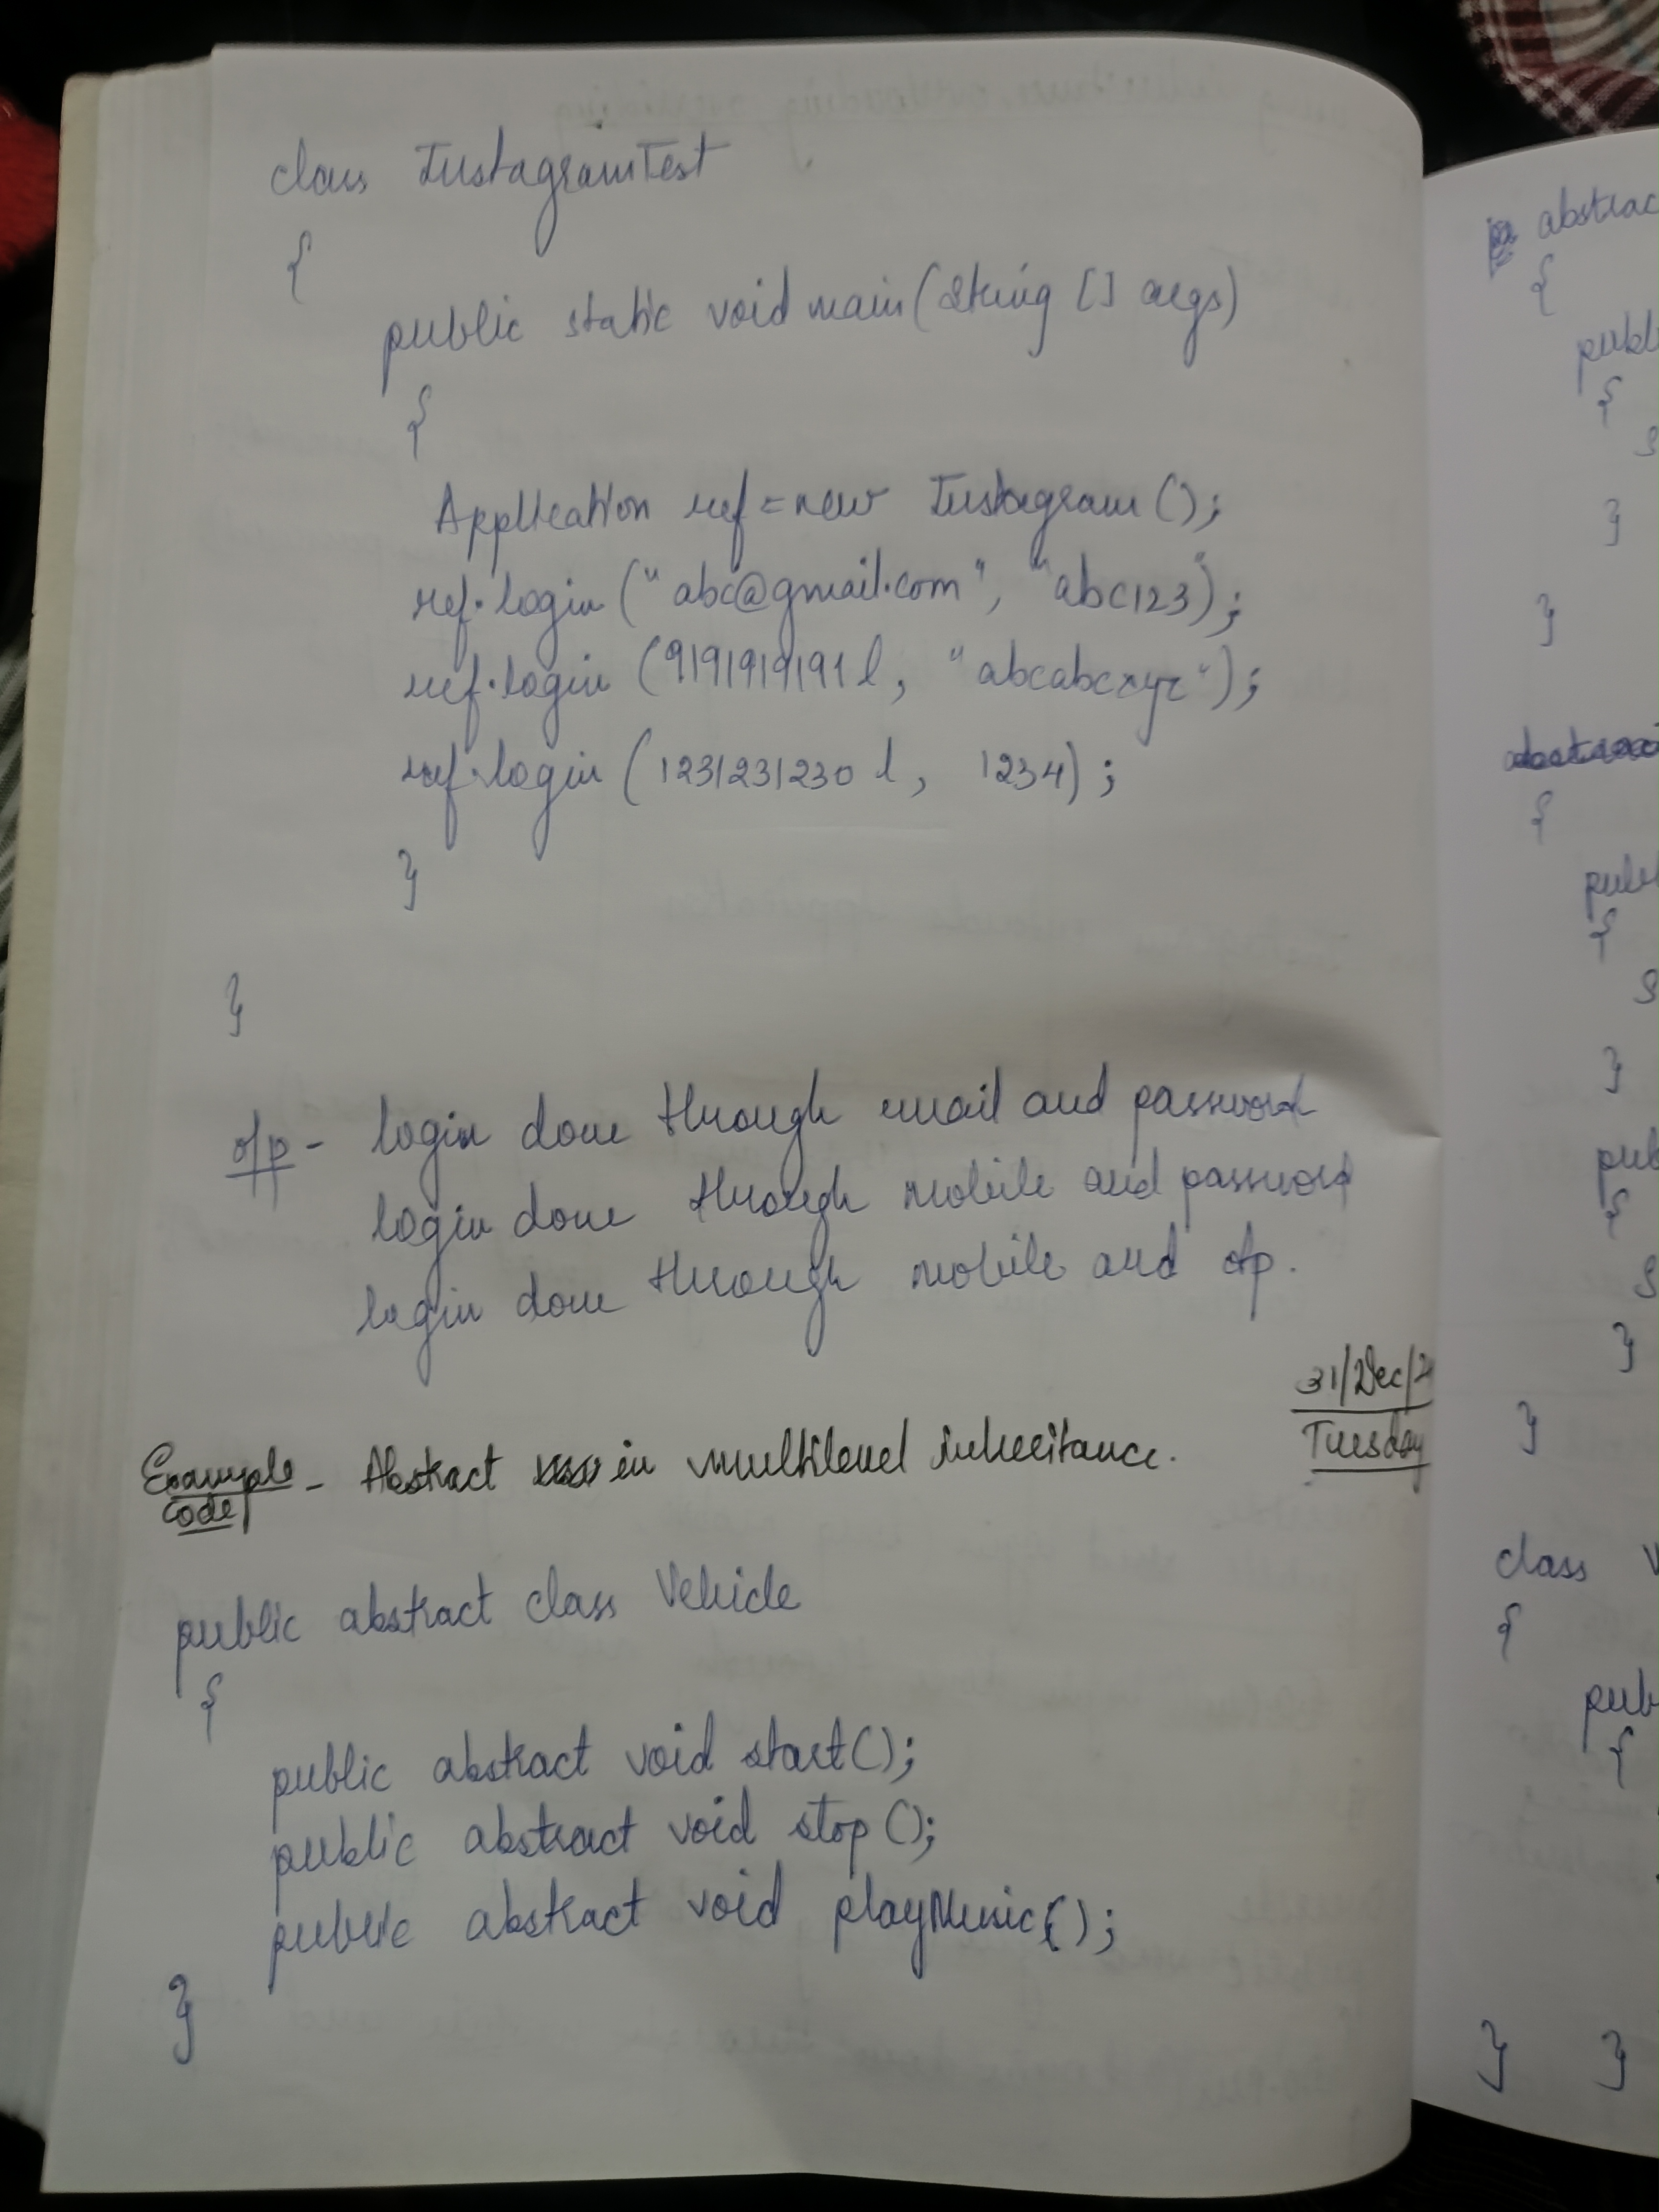 class InstagramTest
{
public static void main(String [] args)
{
Application ref = new Instagram();
ref.login("abc@gmail.com", "abc123");
ref.login(9191919191l, "abcabcxyz");
ref.login(1231231230l, 1234);
}
}
o/p - login done through email and password
login done through mobile and password
login done through mobile and otp.
31/Dec/2
Tuesday
Example code - Abstract in multilevel inheritance.
public abstract class Vehicle
{
public abstract void start();
public abstract void stop();
public abstract void playMusic();
}
abstrac
{
publ
{
S
}
}
{
publ
{
S
}
pub
{
S
}
}
class V
{
pub
{
} }